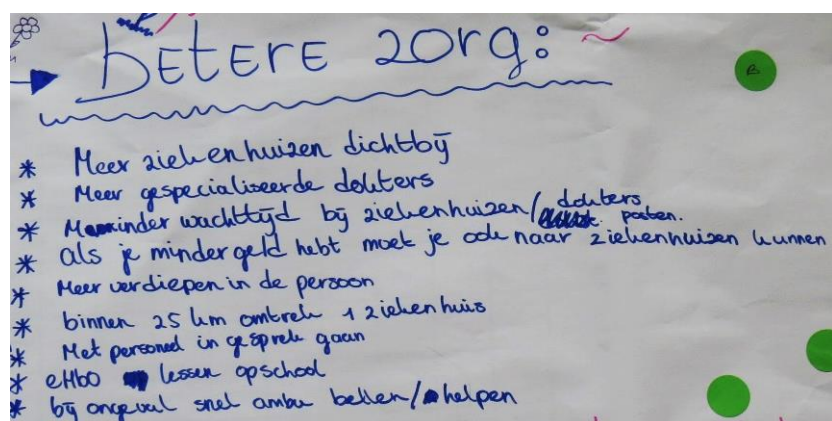 betere zorg:
* Meer ziekenhuizen dichtbij
* Meer gespecialiseerde dokters
* Minder wachttijd bij ziekenhuizen/dokters posten.
* als je minder geld hebt moet je ook naar ziekenhuizen kunnen
* Meer verdiepen in de persoon
* binnen 25 km omtrek 1 ziekenhuis
* Met personeel in gesprek gaan
* eHbO lessen op school
* bij ongeval snel ambu bellen/helpen